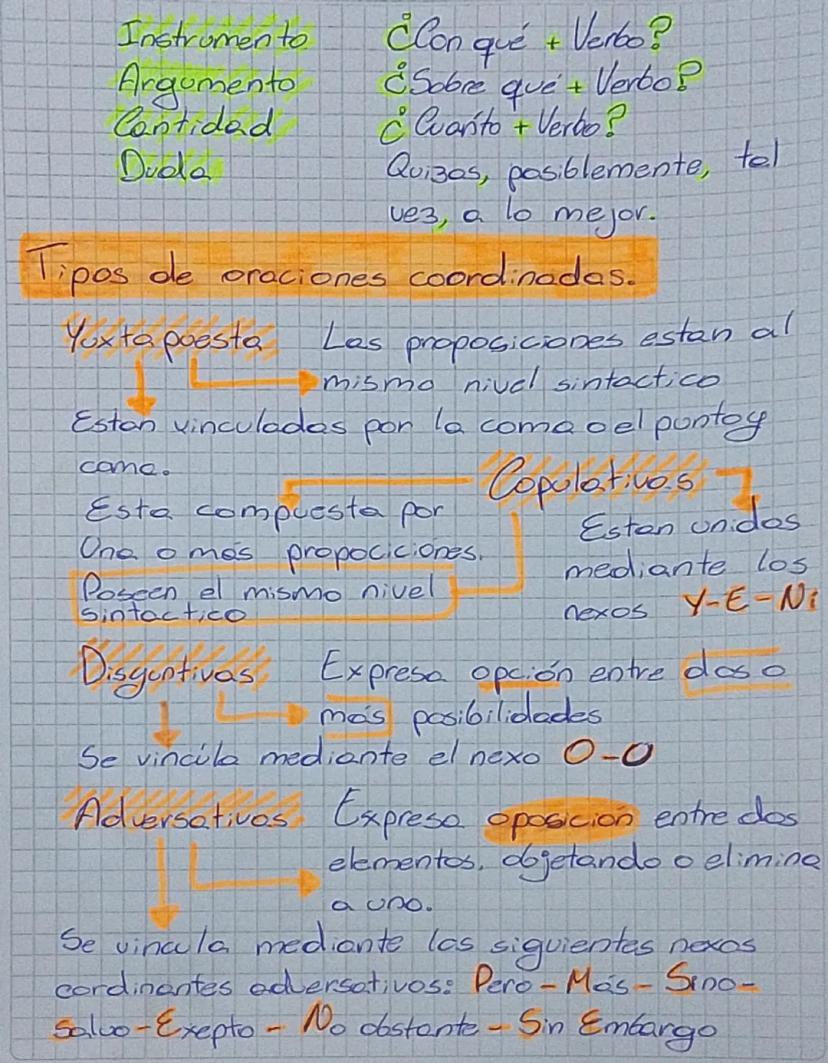 Instrumento ¿Con qué + Verbo?
Argumento ¿Sobre qué + Verbo?
Cantidad ¿Cuanto + Verbo?
Duda Quizas, posiblemente, tal
vez, a lo mejor.
Tipos de oraciones coordinadas.
Yuxtapuesta Las proposiciones estan al
mismo nivel sintactico
Estan vinculadas por la coma o el punto y
coma.
Copulativas
Esta compuesta por
Una o más propociciones.
Poseen el mismo nivel
sintactico
Estan unidas
mediante los
nexos Y-E-Ni
Disyuntivas Expresa opción entre dos o
más posibilidades
Se vincula mediante el nexo O-O
Adversativas Expresa oposición entre dos
elementos, objetando o elimina
a uno.
Se vincula mediante los siguientes nexos
cordinantes adversativos: Pero - Más - Sino -
Salvo - Exepto - No obstante - Sin Embargo